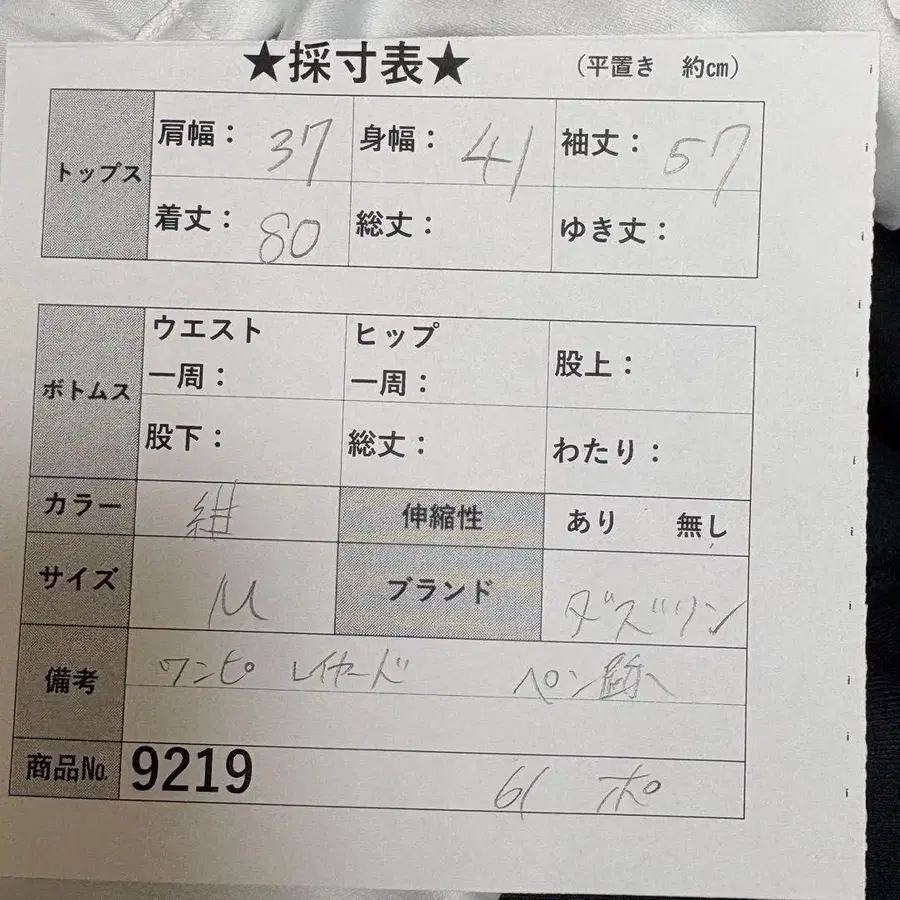 ★採寸表★ (平置き 約cm)
トップス
肩幅: 37 身幅: 41 袖丈: 57
着丈: 80 総丈: ゆき丈:
ボトムス
ウエスト一周: ヒップ一周: 股上:
股下: 総丈: わたり:
カラー 紺 伸縮性 あり 無し
サイズ M ブランド ダズリン
備考 ワンピ レイヤード ペン跡
商品No. 9219 61 ポ